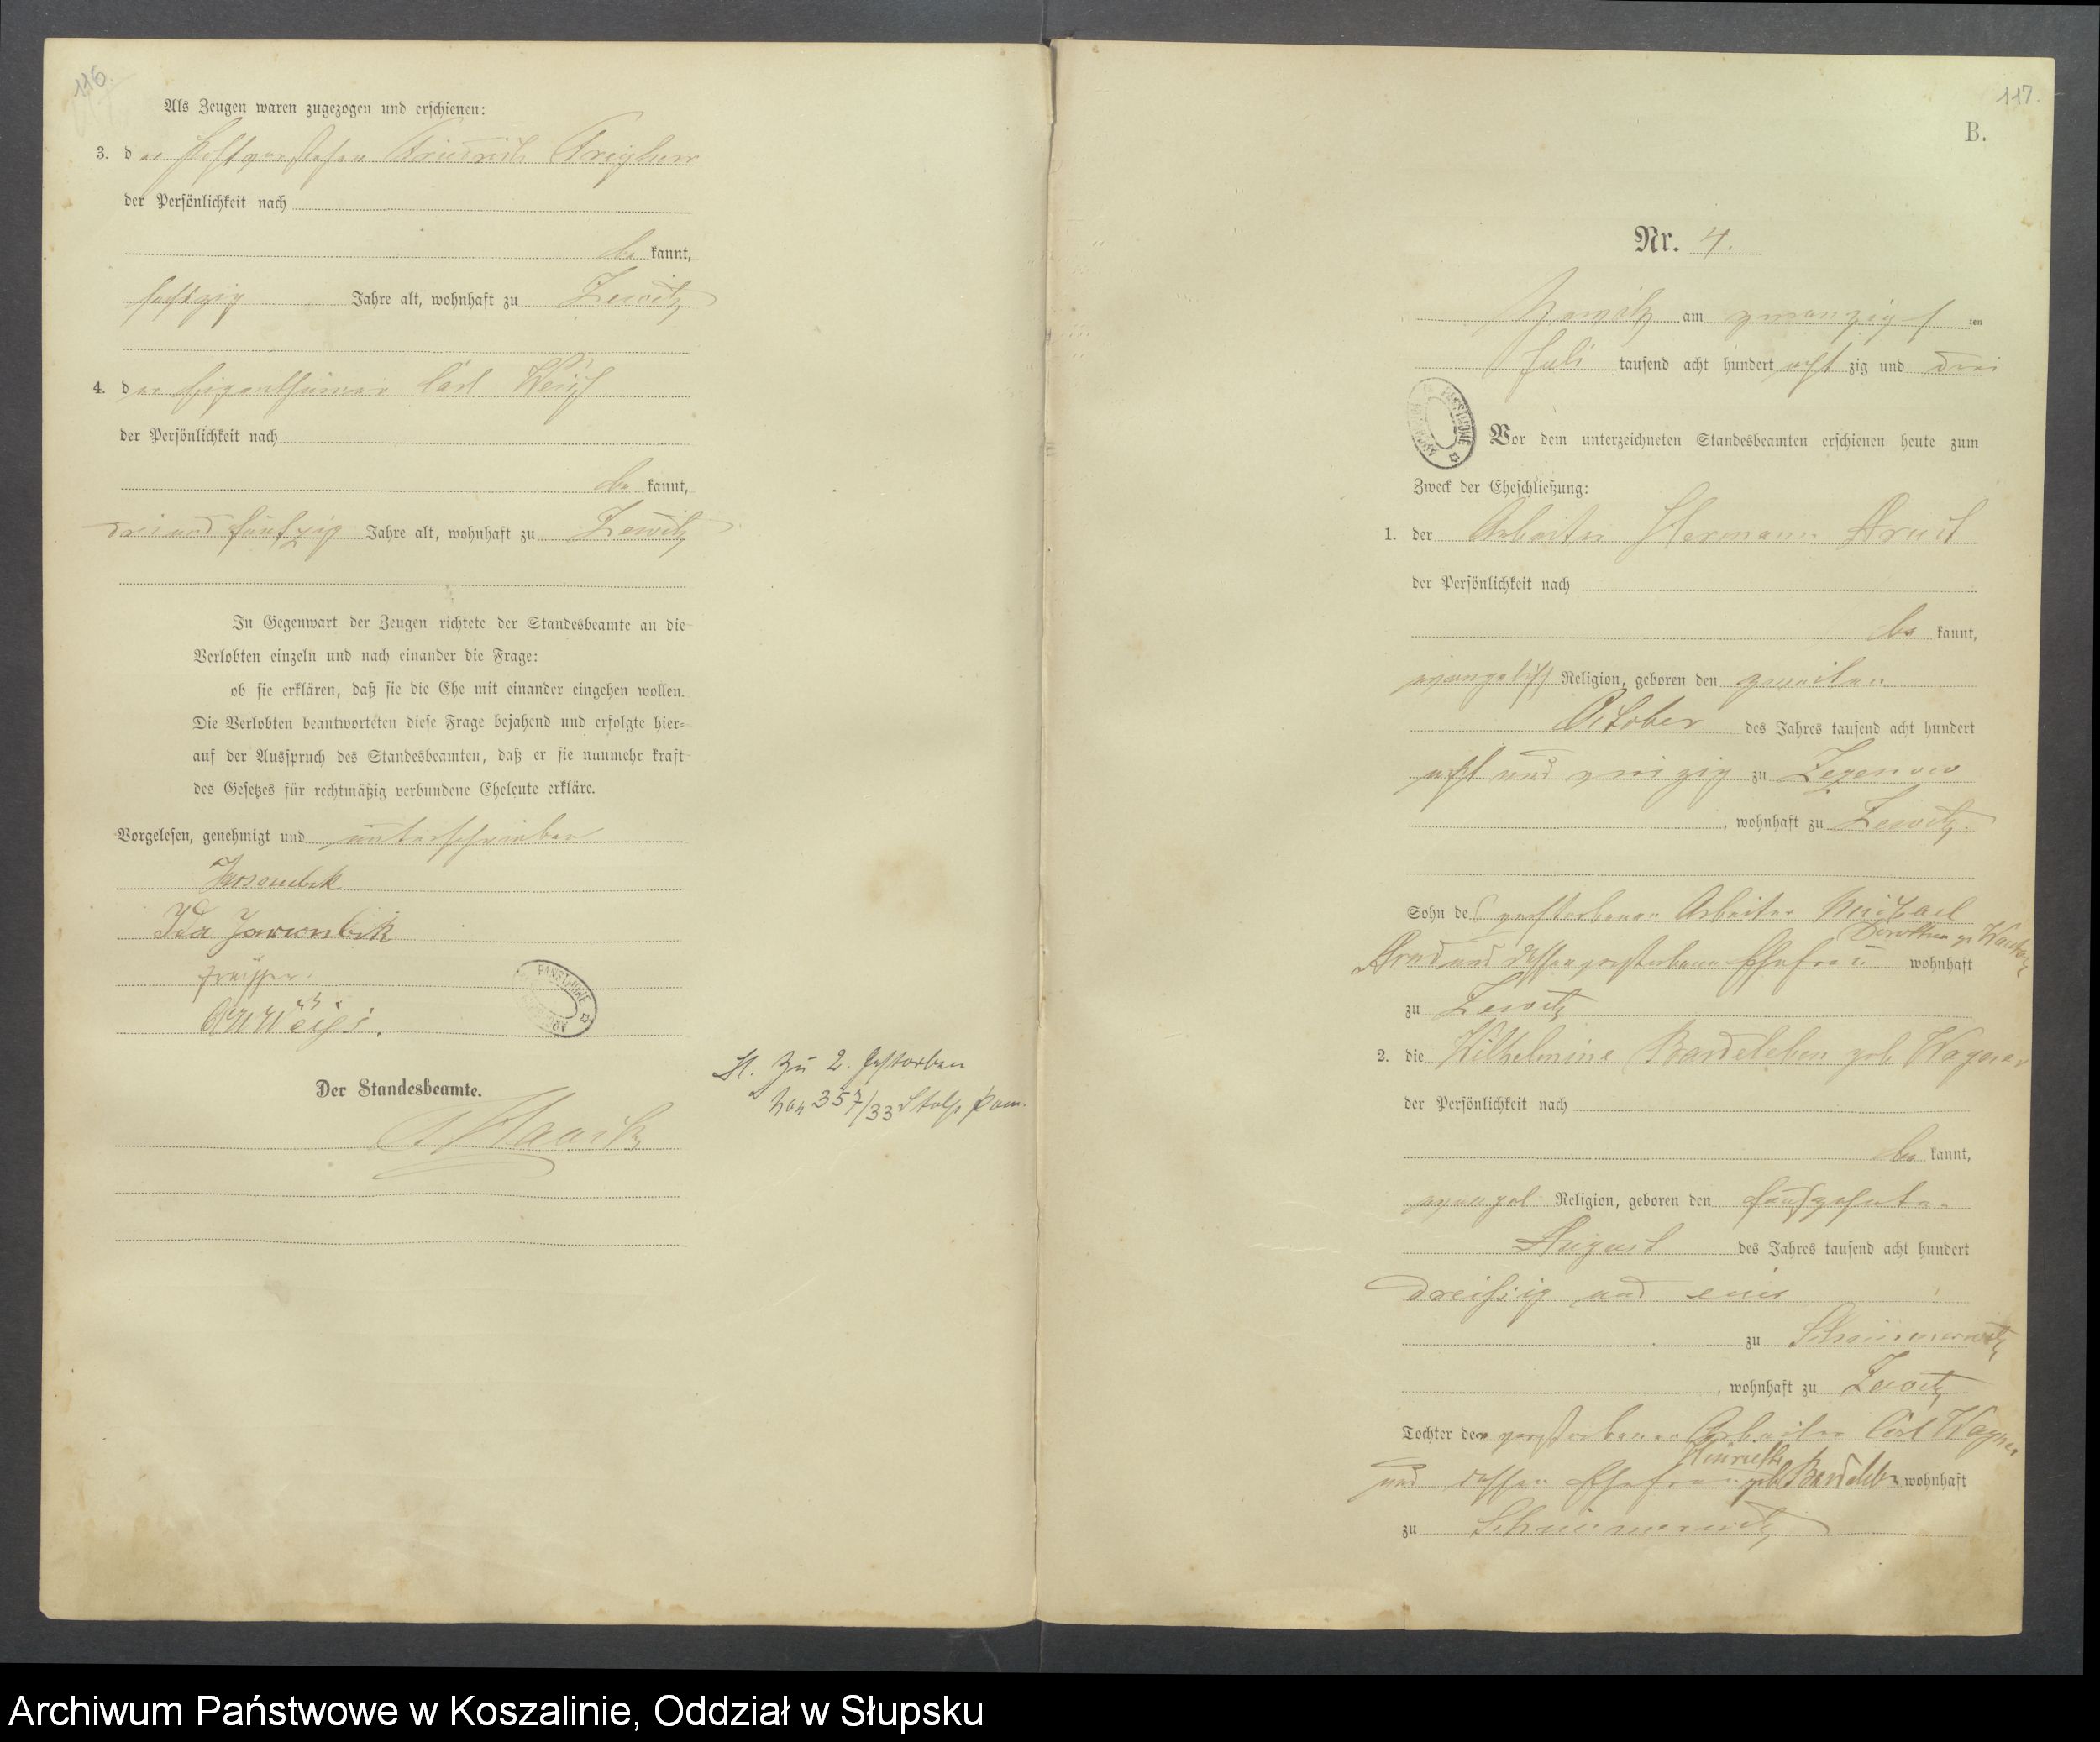 116.
Als Zeugen waren zugezogen und erschienen:
3. der Hofvorsteher Friedrich Freyherr
der Persönlichkeit nach
be kannt,
sechzig Jahre alt, wohnhaft zu Zewitz
4. der Eigenthümer Carl Weiß
der Persönlichkeit nach
be kannt,
drei und fünfzig Jahre alt, wohnhaft zu Zewitz
In Gegenwart der Zeugen richtete der Standesbeamte an die
Verlobten einzeln und nach einander die Frage:
ob sie erklären, daß sie die Ehe mit einander eingehen wollen.
Die Verlobten beantworteten diese Frage bejahend und erfolgte hier=
auf der Ausspruch des Standesbeamten, daß er sie nunmehr kraft
des Gesetzes für rechtmäßig verbundene Eheleute erkläre.
Vorgelesen, genehmigt und unterschrieben
Ida
Der Standesbeamte.
zu 2. gestorben
357/33 Stolp Pom.
117.
B.
Nr. 4.
Zewitz am zwanzigsten
Juli tausend acht hundert acht zig und drei
Vor dem unterzeichneten Standesbeamten erschienen heute zum
Zweck der Eheschließung:
1. der Arbeiter Hermann Arndt
der Persönlichkeit nach
be kannt,
evangelisch Religion, geboren den zweiten
October des Jahres tausend acht hundert
acht und vierzig zu Zezenow
, wohnhaft zu Zewitz.
Sohn des verstorbenen Arbeiter Michael
Dorothea
und dessen verstorbene Ehefrau wohnhaft
zu Zewitz
2. die Wilhelmine Bardeleben geb Wagner
der Persönlichkeit nach
be kannt,
evangel Religion, geboren den fünfzehnten
August des Jahres tausend acht hundert
dreißig und eins
zu Schimmerwitz
, wohnhaft zu Zewitz
Tochter des verstorbenen Arbeiter Carl Wagner
Henriette
und dessen Ehefrau geb Bardeleben wohnhaft
zu Schimmerwitz
Archiwum Państwowe w Koszalinie, Oddział w Słupsku